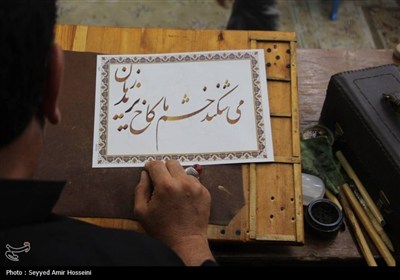 می شکند خشم ما کاخ یزیدیان
Photo : Seyyed Amir Hosseini